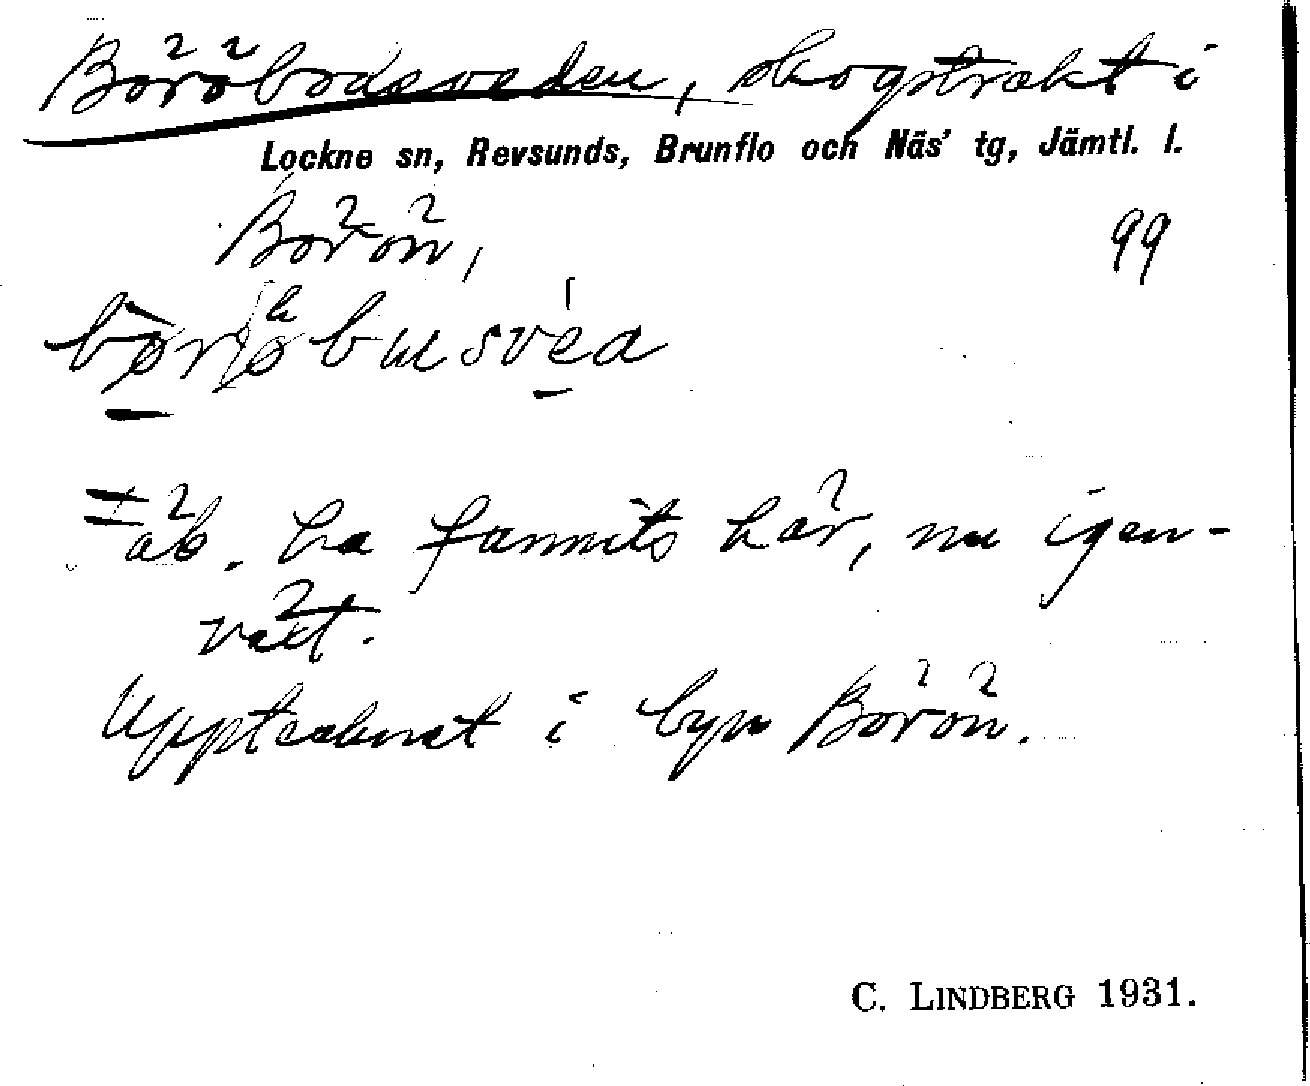 Böröbodsveden, skogstrakt i
Lockne sn, Revsunds, Brunflo och Näs' tg, Jämtl. l.
Börön, 99

äb. ha funnits här, nu igen-
växt.
Upptecknat i byn Börön.
C. LINDBERG 1931.